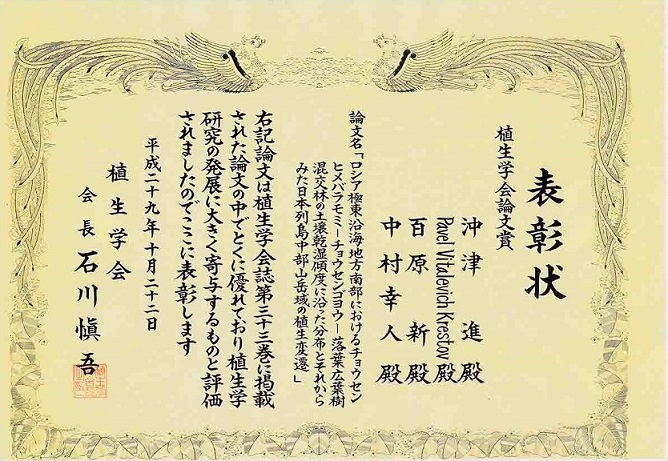 表彰状
植生学会論文賞
沖津　進　殿
Pavel Vitalevich Krestov 殿
百原　新　殿
中村幸人　殿
論文名「ロシア極東沿海地方南部におけるチョウセン
ヒメバラモミーチョウセンゴヨウー落葉広葉樹
混交林の土壌乾湿傾度に沿った分布とそれから
みた日本列島中部山岳域の植生変遷」
右記論文は植生学会誌第三十三巻に掲載
された論文の中でとくに優れており植生学
研究の発展に大きく寄与するものと評価
されましたのでここに表彰します
平成二十九年十月二十二日
植生学会
会長　石川愼吾